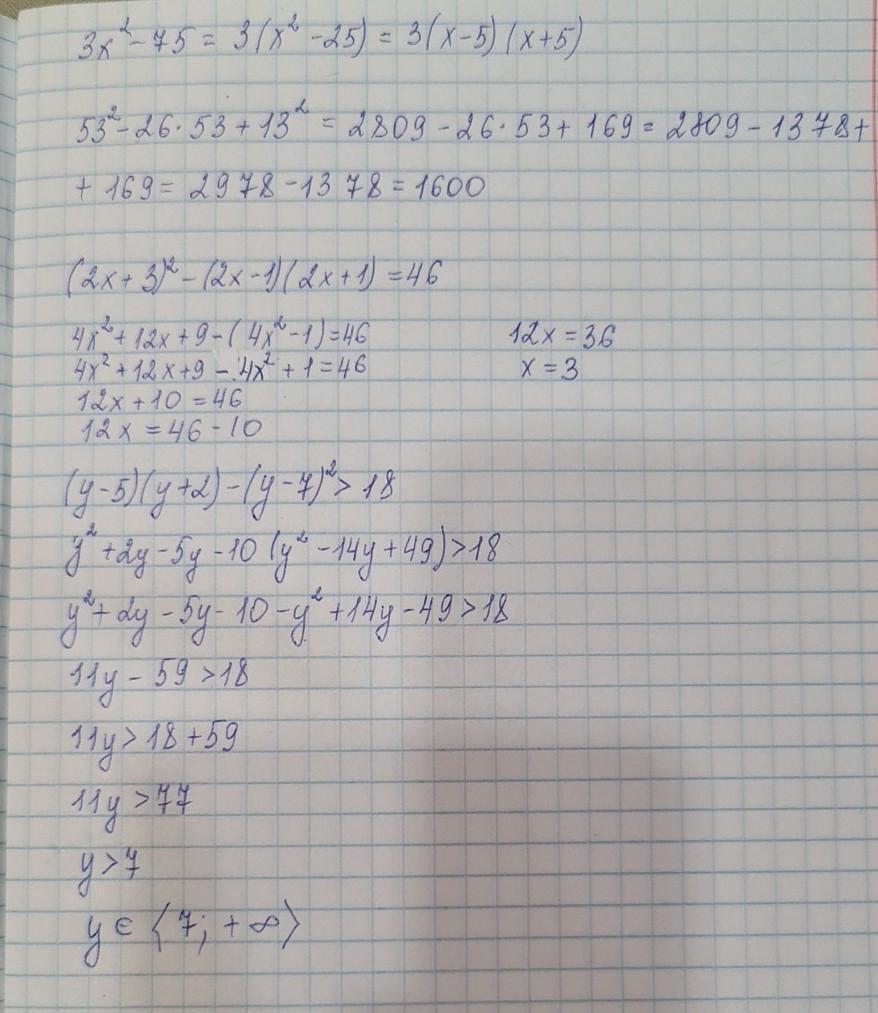 3x² - 75 = 3(x² - 25) = 3(x - 5)(x + 5)
53² - 26 · 53 + 13² = 2809 - 26 · 53 + 169 = 2809 - 1378 +
+ 169 = 2978 - 1378 = 1600
(2x + 3)² - (2x - 1)(2x + 1) = 46
4x² + 12x + 9 - (4x² - 1) = 46
4x² + 12x + 9 - 4x² + 1 = 46
12x + 10 = 46
12x = 46 - 10
12x = 36
x = 3
(y - 5)(y + 2) - (y - 7)² > 18
y² + 2y - 5y - 10 (y² - 14y + 49) > 18
y² + 2y - 5y - 10 - y² + 14y - 49 > 18
11y - 59 > 18
11y > 18 + 59
11y > 77
y > 7
y ∈ ⟨7; + ∞⟩